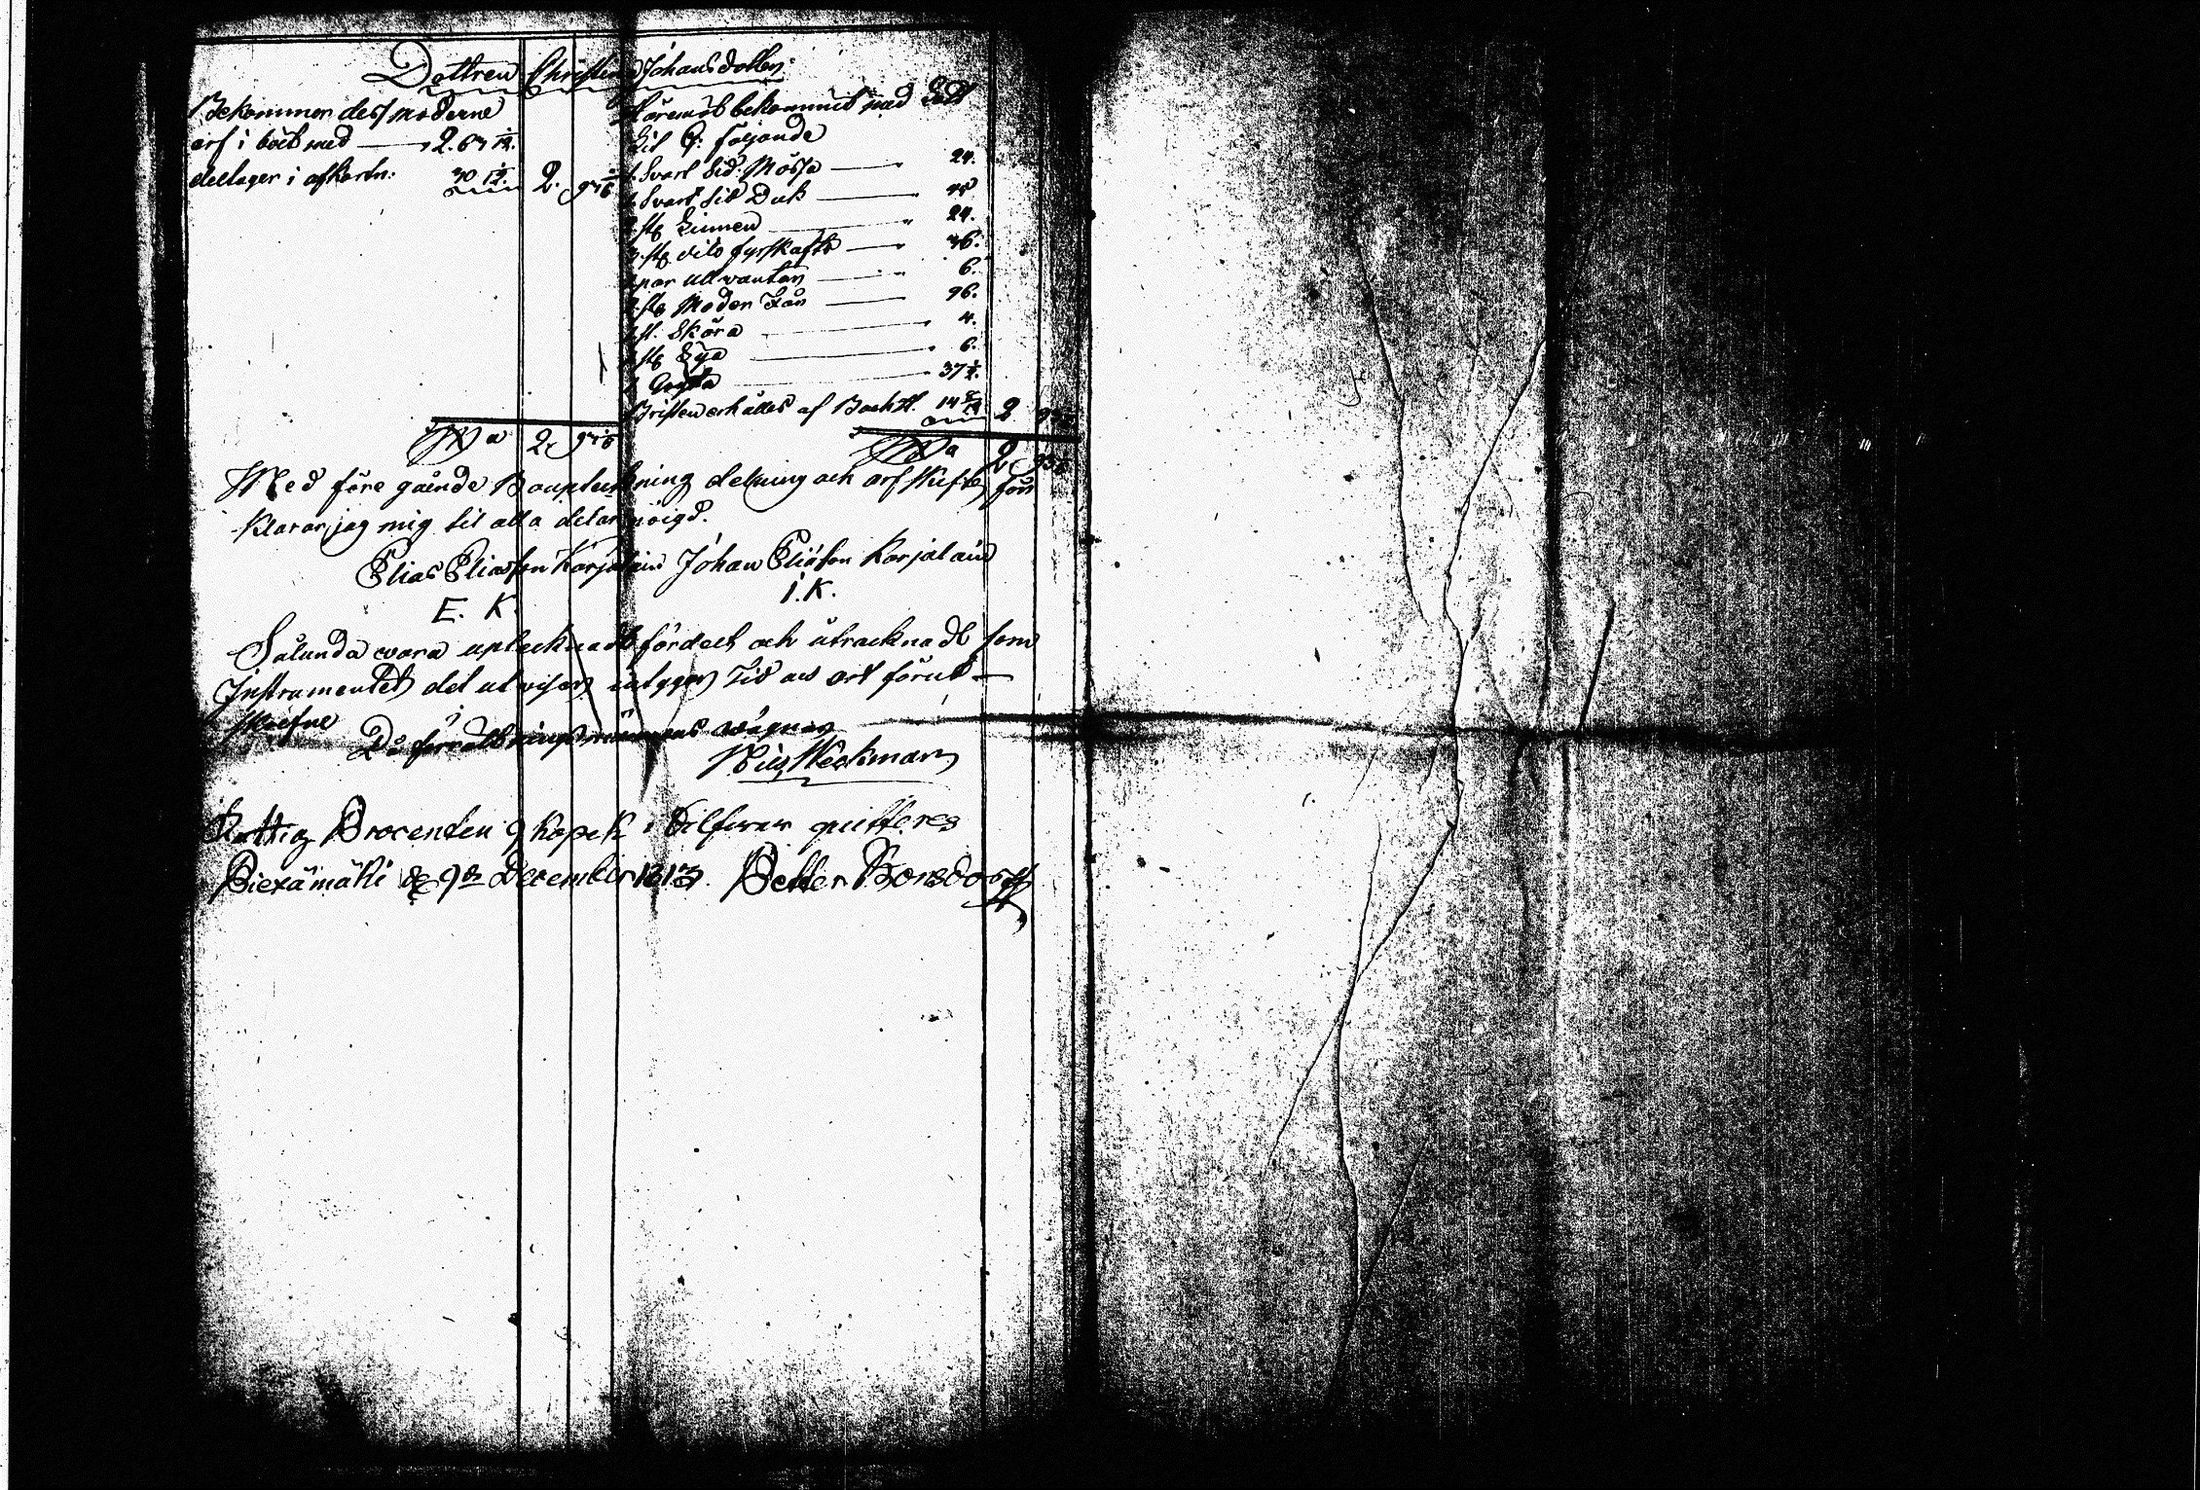 Dottren Christina Johansdotter
Bekommer dess moderne
arf i boet med — 2. 63
deltager i afkortn. 30 2.
Häremot bekommit med Lott
Lit. C: följande
1 Svart Sid. Mössa — 24.
1 Svart Sid Duk — 48
st. Linnen — 24.
st. dito fyrskafts — 36.
par ullvantar — 6.
st. Moder Får — 96.
st. Skära — 4.
st. Lya — 6.
1 Gryta — 37 1/2.
Bristen erhålles af Back N. 14 2
Summa 2
Summa 2
Med före gående Boupteckning delning och arfskifte för
klarar jag mig til alla delar nöigd.
Elias Eliasson Karjalain Johan Eliason Karjalain
E. K. I. K.
Sålunda vara uptecknadt fördelt och uträcknadt som
Instrumentet det utvisar intygar Tid och ort förut
skrefne
På förrättningsmannens vägnar
Nils Weckman
Fattig Procenten 9 kopek i Silfwer quitteres
Piexämäki d. 9de December 1813. Petter Bonsdorff